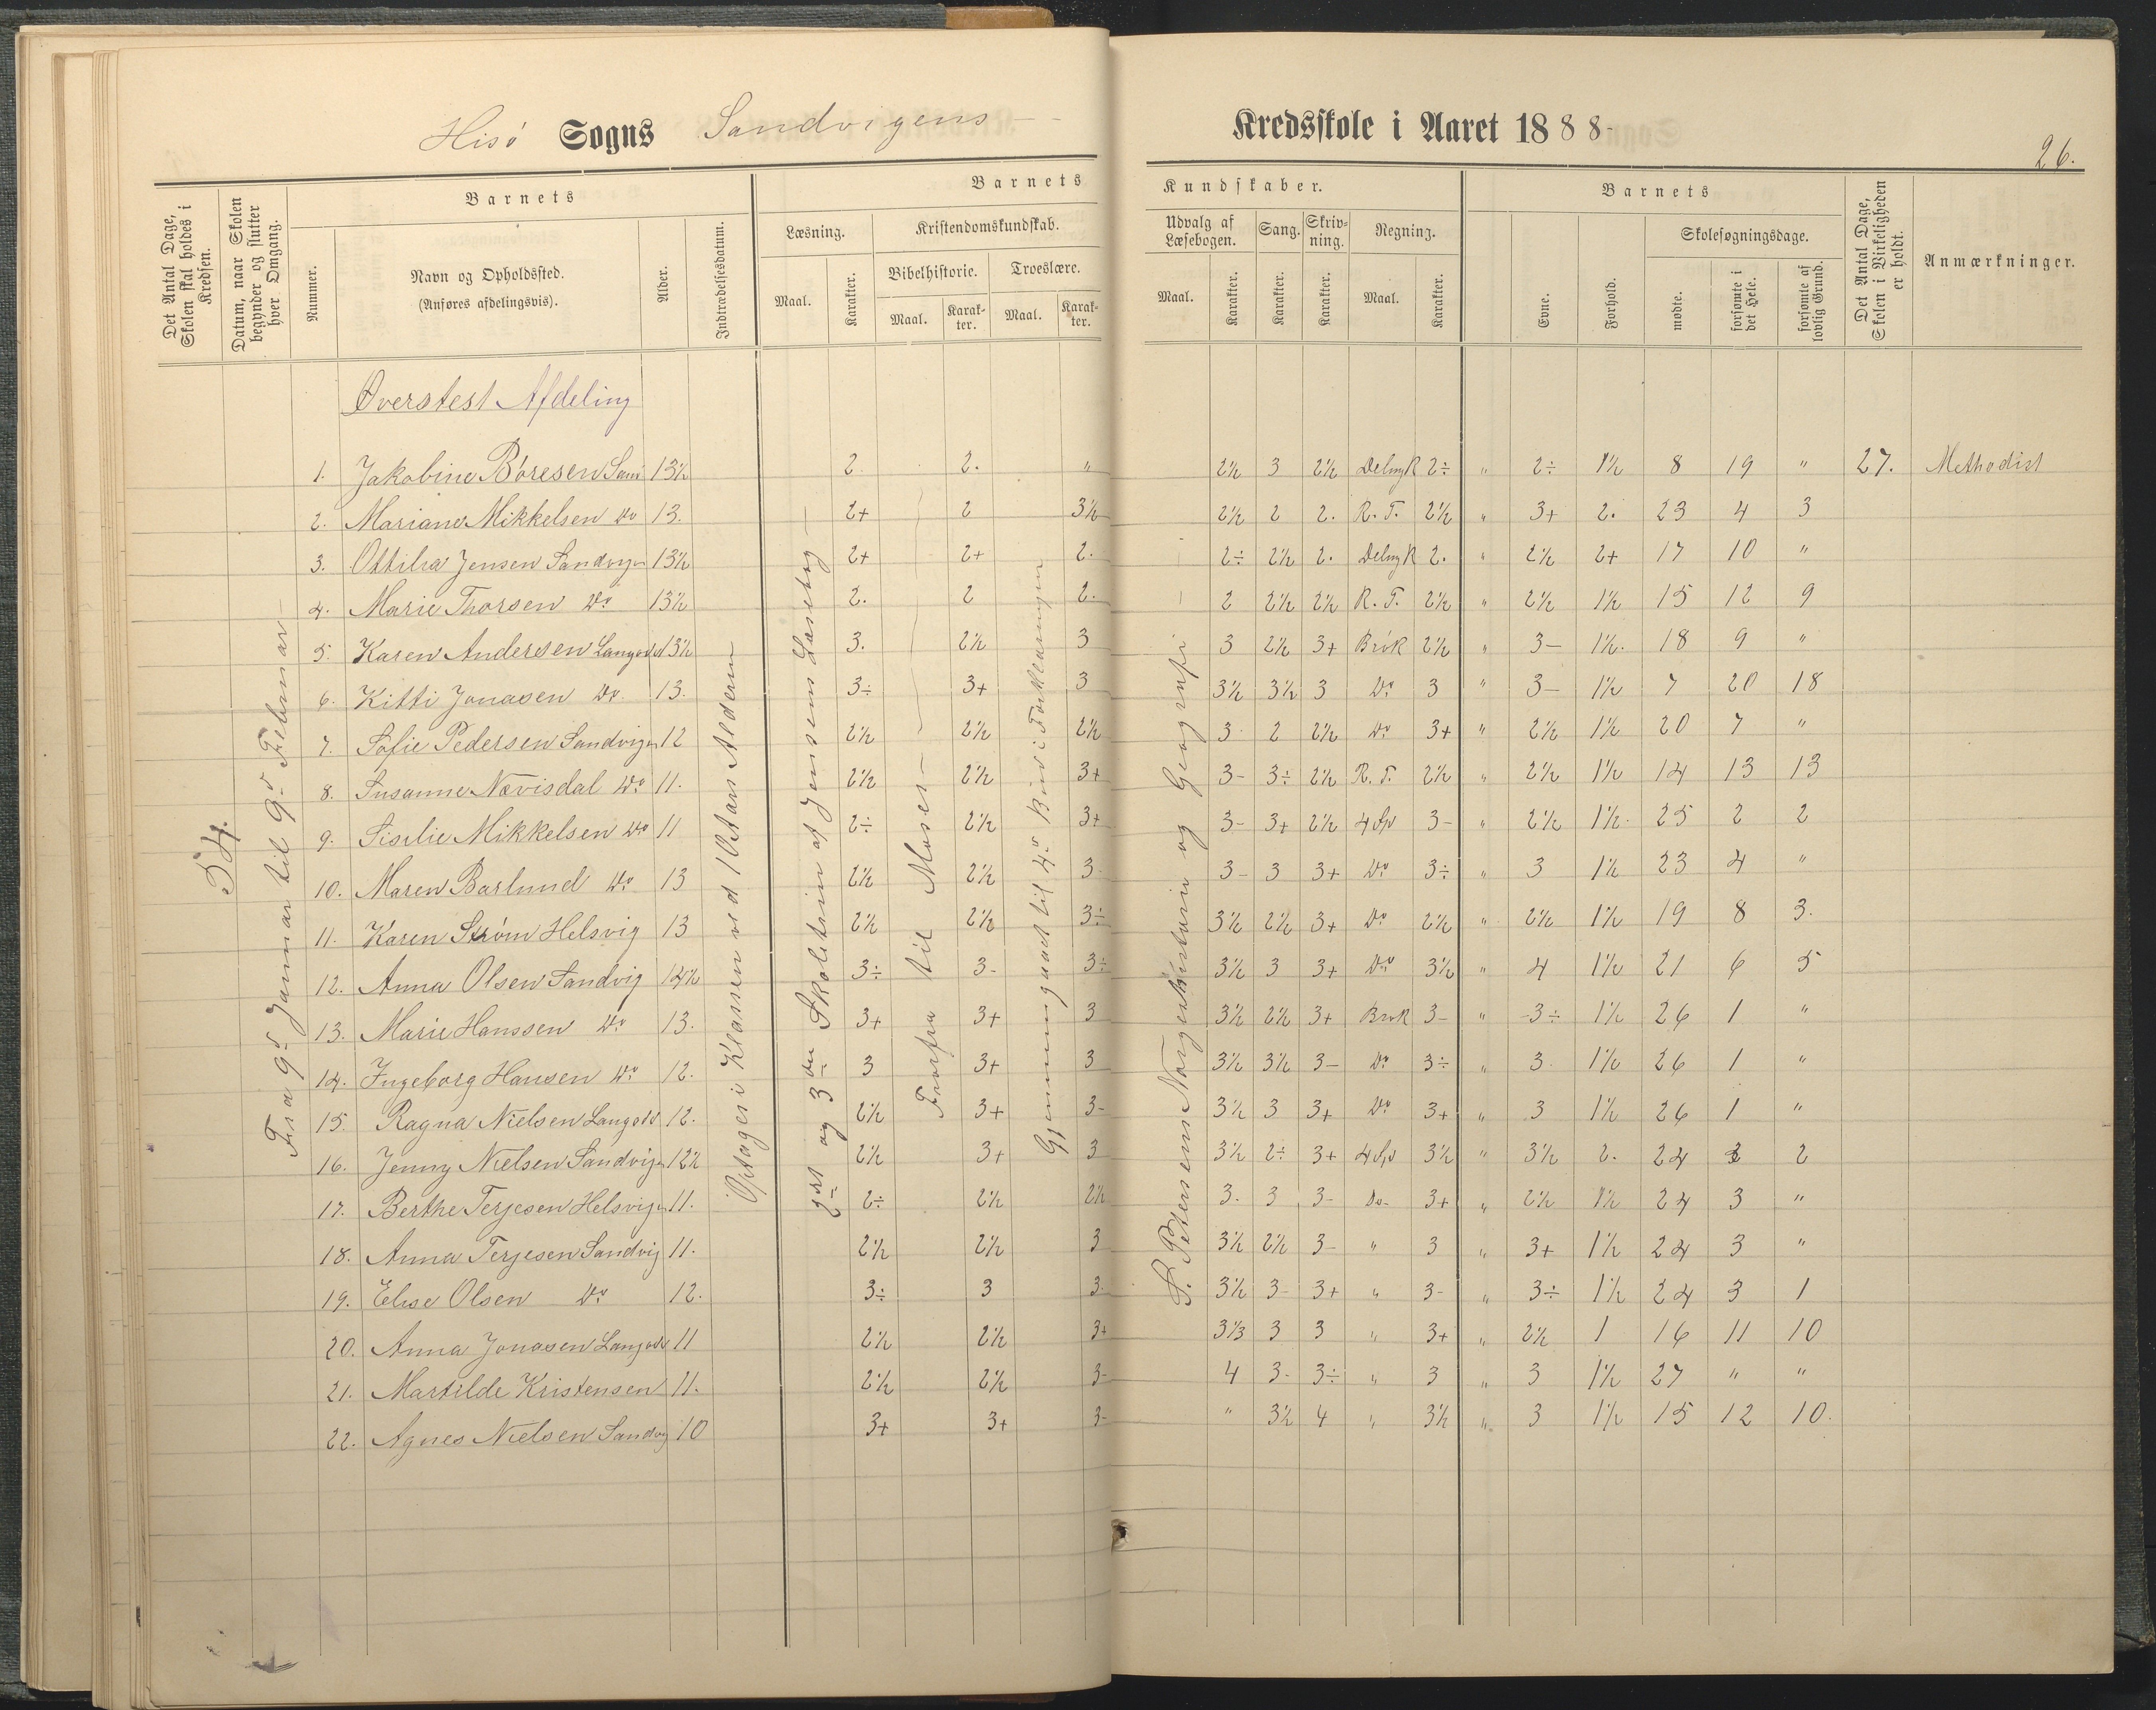 Hisø Sogns Sandvigens Kredsskole i Aaret 1888-
26.
Det Antal Dage, Skolen skal holdes i Kredsen.
Datum, naar Skolen begynder og slutter hver Omgang.
Nummer.
Barnets
Navn og Opholdssted.
(Anføres afdelingsvis).
Alder.
Indtrædelsesdatum.
Barnets Kundskaber.
Læsning.
Maal.
Karakter.
Kristendomskundskab.
Bibelhistorie.
Maal.
Karakter.
Troeslære.
Maal.
Karakter.
Udvalg af Læsebogen.
Maal.
Karakter.
Sang.
Karakter.
Skrivning.
Karakter.
Regning.
Maal.
Karakter.
Barnets
Evne.
Forhold.
Skolesøgningsdage.
mødte.
forsømte i det Hele.
forsømte af lovlig Grund.
Det Antal Dage, Skolen i Virkeligheden er holdt.
Anmærkninger.
Øverstest Afdeling
54.
Fra 9d Januar til 9d Februar
Optages i Klassen ved 10 Aars Alderen
2det og 3die Skoletrin af Jensens Læsebog
Forfra til Moses
Gjennemgaaet til 4d Bud i Forklaringen
S. Petersens Norgeshistorie og Geografi
1. Jakobine Boresen San 13½ 2 2. " 2½ 3 2½ Deling R 2÷ " 2÷ 1½ 8 19 " 27. Methodist
2. Mariane Mikkelsen Do 13. 2+ 2 3½ 2½ 2 2. R. T. 2½ " 3+ 2. 23 4 3
3. Ottilia Jensen Sandvigen 13½ 2+ 2+ 2. 2÷ 2½ 2. Deling R 2. " 2½ 2+ 17 10 "
4. Marie Thorsen Do 13½ 2. 2 2. 2 2½ 2½ R. T. 2½ " 2½ 1½ 15 12 9
5. Karen Andersen Langsæd 13½ 3. 2½ 3 3 2½ 3+ Brøk 2½ " 3- 1½. 18 9 "
6. Kitti Jonasen Do. 13. 3÷ 3+ 3 3½ 3½ 3 Do 3 " 3- 1½ 7 20 18
7. Sofie Pedersen Sandvigen 12 2½ 2½ 2½ 3 2 2½ Do 3+ " 2½ 1½ 20 7 "
8. Susanne Nævisdal Do 11. 2½ 2½ 3+ 3- 3÷ 2½ R. T. 2½ " 2½ 1½ 14 13 13
9. Siselie Mikkelsen Do 11 2÷ 2½ 3+ 3- 3+ 2½ 4 Sp 3- " 2½ 1½. 25 2 2
10. Maren Barlund Do 13 2½ 2½ 3 3- 3 3+ Do 3÷ " 3 1½ 23 4 "
11. Karen Strøm Helsvig 13 2½ 2½ 3÷ 3½ 2½ 3+ Do 2½ " 2½ 1½ 19 8 3.
12. Anna Olsen Sandvig 12½ 3÷ 3- 3÷ 3½ 3 3+ Do 3½ " 4 1½ 21 6 5
13. Marie Hanssen Do 13. 3+ 3+ 3 3½ 2½ 3+ Brøk 3- " 3÷ 1½ 26 1 "
14. Ingeborg Hansen Do 12. 3 3+ 3 3½ 3½ 3- Do 3÷ " 3 1½ 26 1 "
15. Ragna Nielsen Langsæd 12. 2½ 3+ 3- 3½ 3 3+ Do 3+ " 3 1½ 26 1 "
16. Jenny Nielsen Sandvigen 12½ 2½ 3+ 3 3½ 2÷ 3+ 4 Sp 3½ " 3½ 2. 24 3 2
17. Berthe Terjesen Helsvigen 11. 2÷ 2½ 2½ 3. 3 3- Do- 3+ " 2½ 1½ 24 3 "
18. Anna Terjesen Sandvig 11. 2½ 2½ 3 3½ 2½ 3- " 3 " 3+ 1½ 24 3 "
19. Elise Olsen Do 12. 3÷ 3 3. 3½ 3- 3+ " 3- " 3÷ 1½ 24 3 1
20. Anna Jonasen Langsæd 11 2½ 2½ 3+ 3⅓ 3 3 " 3+ " 2½ 1 16 11 10
21. Martilde Kristensen 11. 2½ 2½ 3- 4 3- 3÷ " 3 " 3 1½ 27 " "
22. Agnes Nielsen Sandvig 10 3+ 3+ 3- " 3½ 4 " 3½ " 3 1½ 15 12 10.